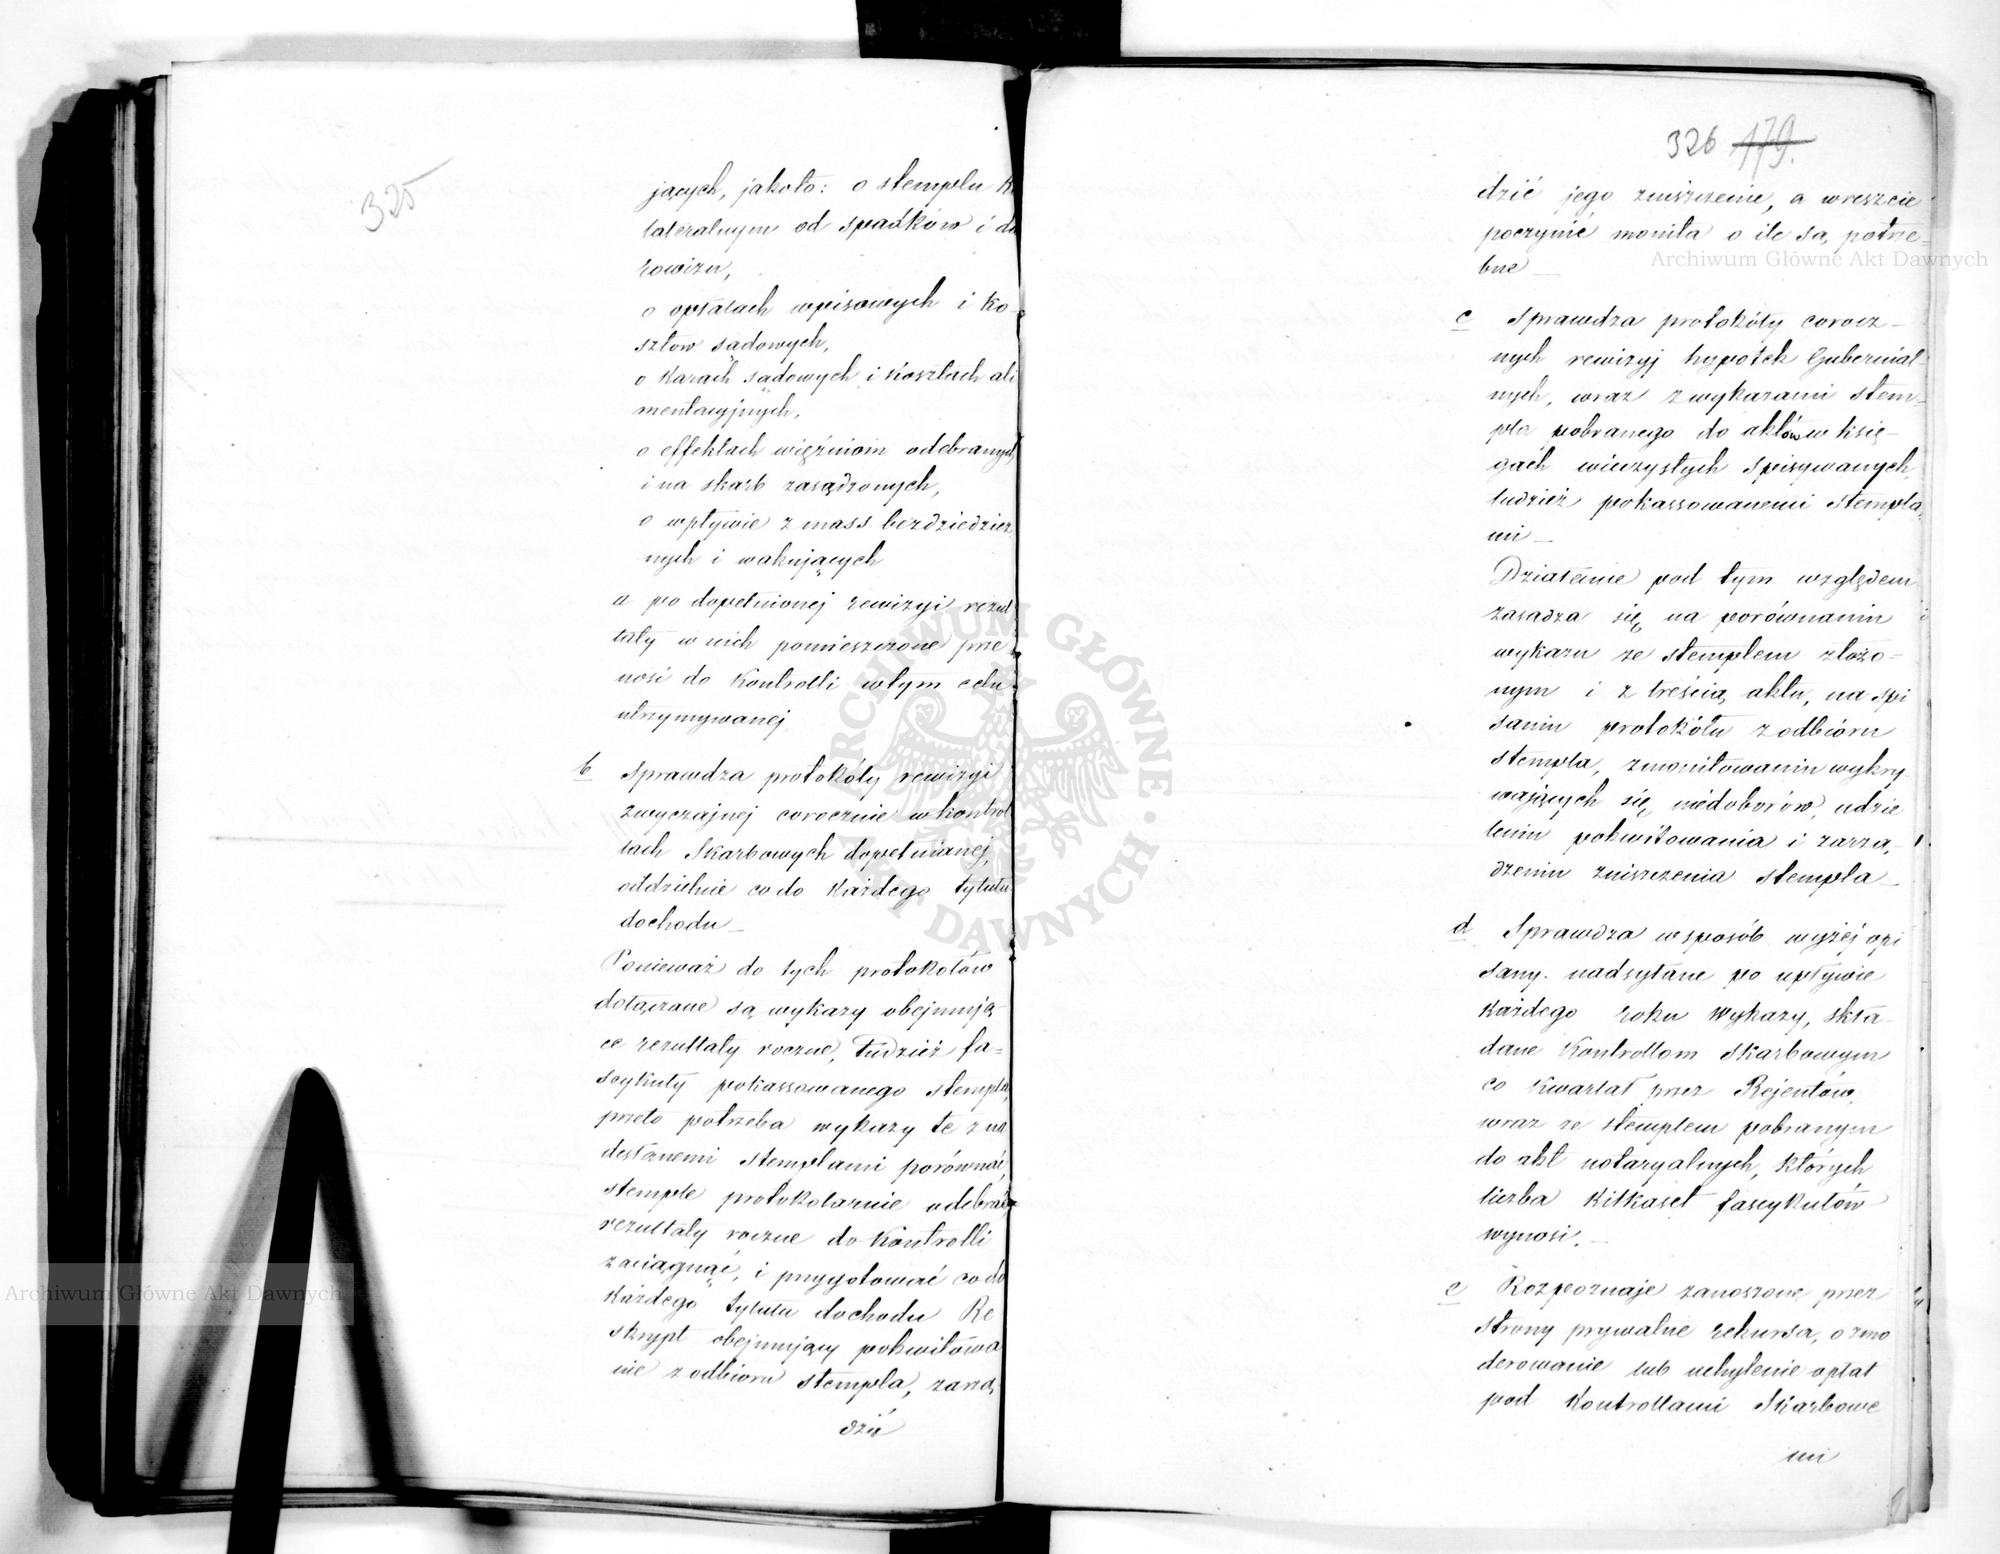 325
jących, jakoto: o stemplu ko
lateralnym od spadków i da
rowizn,
o opłatach wpisowych i ko-
sztów sądowych,
o karach sądowych i kosztach ali
mentacyjnych,
o effektach więźniom odebranych
i na skarb zasądzonych,
o wpływie z mass bezdziedzicz
nych i wakujących
a po dopełnionej rewizyi rezul
taty w nich pomieszczone prze
nosi do Kontrolli w tym celu
utrzymywanej
b Sprawdza protokóły rewizyi
zwyczajnej corocznie w kontrol
lach Skarbowych dopełnianej,
oddzielnie co do każdego tytułu
dochodu –
Ponieważ do tych protokołów
dołączone są wykazy obejmują-
ce rezultaty roczne, tudzież fa-
scykuły pokassowanego stempla,
przeto potrzeba wykazy te z na
desłanemi stemplami porównać,
stemple protokolarnie odebrać,
rezultaty roczne do Kontrolli
zaciągnąć, i przygotować co do
każdego tytułu dochodu Re
skrypt obejmujący pokwitowa
nie z odbioru stempla, zarzą
dzić
326 179.
dzić jego zniszczenie, a wreszcie
poczynić monita o ile są potrze-
bne –
c Sprawdza protokóły corocz-
nych rewizyj hypotek Gubernial-
nych, wraz z wykazami stem-
pla pobranego do aktów w księ-
gach wieczystych spisywanych,
tudzież pokassowanemi stempla,
mi –
Działanie pod tym względem
zasadza się na porównaniu
wykazu ze stemplem złożo-
nym i z treścią aktu, na spi
saniu protokółu z odbioru
stempla, zmonitowaniu wykry-
wających się niedoborów, udzie
leniu pokwitowania i zarzą-
dzeniu zniszczenia stempla –
d Sprawdza w sposób wyżej opi
sany. nadsyłane po upływie
każdego roku Wykazy, skła-
dane Kontrollom Skarbowym
co kwartał przez Rejentów,
wraz ze stemplem pobranym
do akt notaryalnych, których
liczba kilkaset fascykułów
wynosi. –
e Rozpoznaje zanoszone przez
strony prywatne rekursa, o zmo
derowanie lub uchylenie opłat
pod Kontrollami Skarbowe
mi
Archiwum Główne Akt Dawnych
Archiwum Główne Akt Dawnych
ARCHIWUM GŁÓWNE AKT DAWNYCH